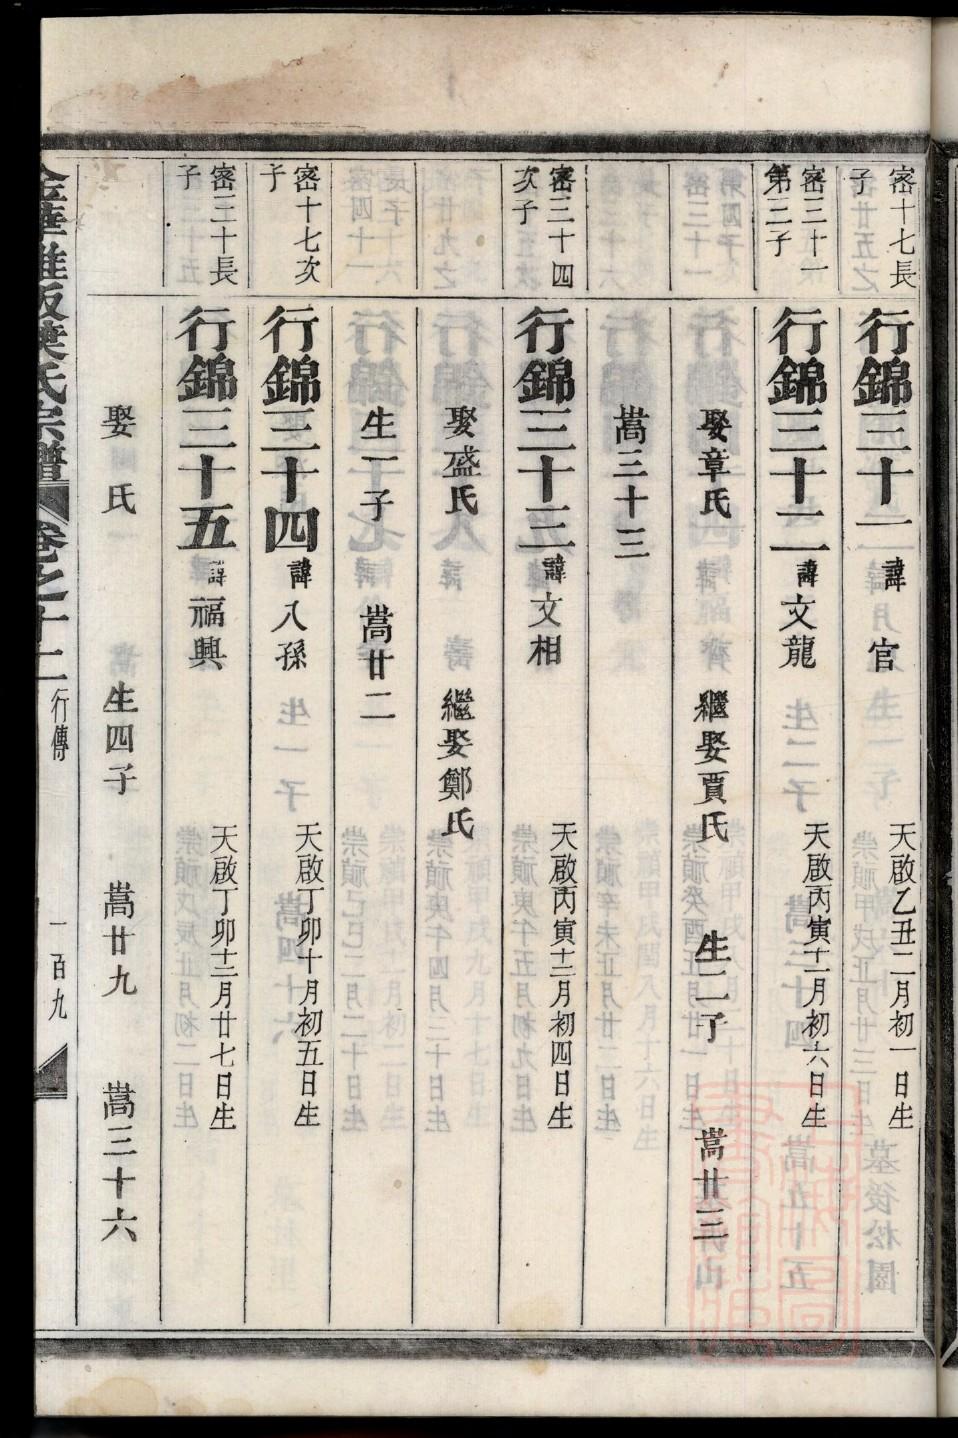 密十七長子
行錦三十一 諱 官 天啟乙丑二月初一日生
密三十一第三子
行錦三十二 諱文龍 天啟丙寅十一月初六日生
娶章氏 繼娶賈氏 生二子 嵩廿三
嵩三十三
密三十四次子
行錦三十三 諱文相 天啟丙寅十二月初四日生
娶盛氏 繼娶鄭氏
生一子 嵩廿二
密十七次子
行錦三十四 諱八孫 天啟丁卯十月初五日生
密三十長子
行錦三十五 諱福興 天啟丁卯十二月廿七日生
娶 氏 生四子 嵩廿九 嵩三十六
氏宗譜 卷之十二 行傳 一百九